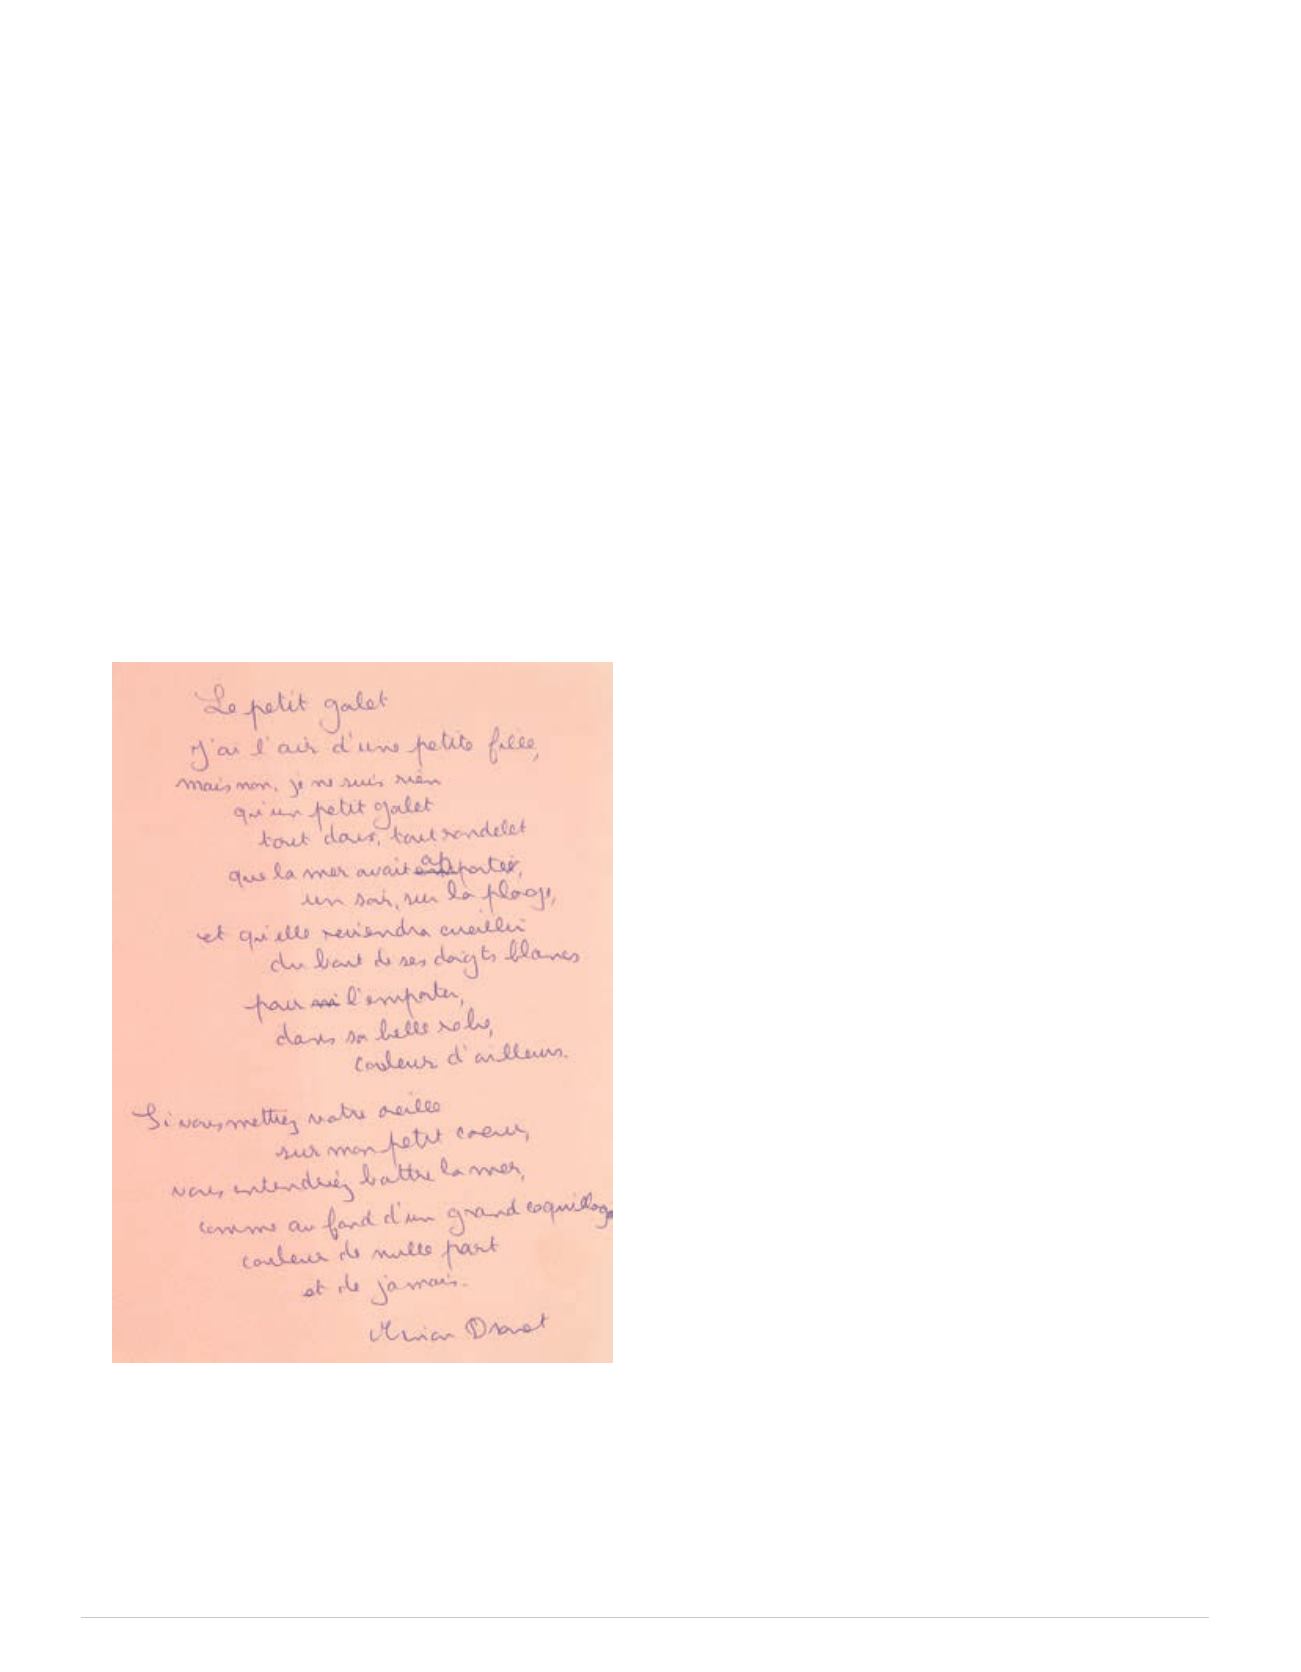 Le petit galet
J'ai l'air d'une petite fille,
mais non, je ne suis rien
qu'un petit galet
tout doux, tout rondelet
que la mer avait apporté,
un soir, sur la plage,
et qu'elle reviendra cueillir
du bout de ses doigts blancs
pour l'emporter,
dans sa belle robe,
couleur d'ailleurs.
Si vous mettiez votre oreille
sur mon petit coeur,
vous entendriez battre la mer,
comme au fond d'un grand coquillage
couleur de nulle part
et de jamais.
Minou Drouet